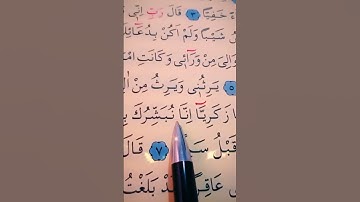 ءً خَفِيًّا ٣ قَالَ رَبِّ اِنّ۪ي
شَيْبًا وَلَمْ اَكُنْ بِدُعَٓائِ
وَالِيَ مِنْ وَرَٓائ۪ي وَكَانَتِ امْ
٥ يَرِثُن۪ي وَيَرِثُ مِنْ اٰ
ا زَكَرِيَّٓا اِنَّا نُبَشِّرُكَ بِ
قَبْلُ سَ ٧ قَالَ
ي عَاقِرًا بَلَغْتُ